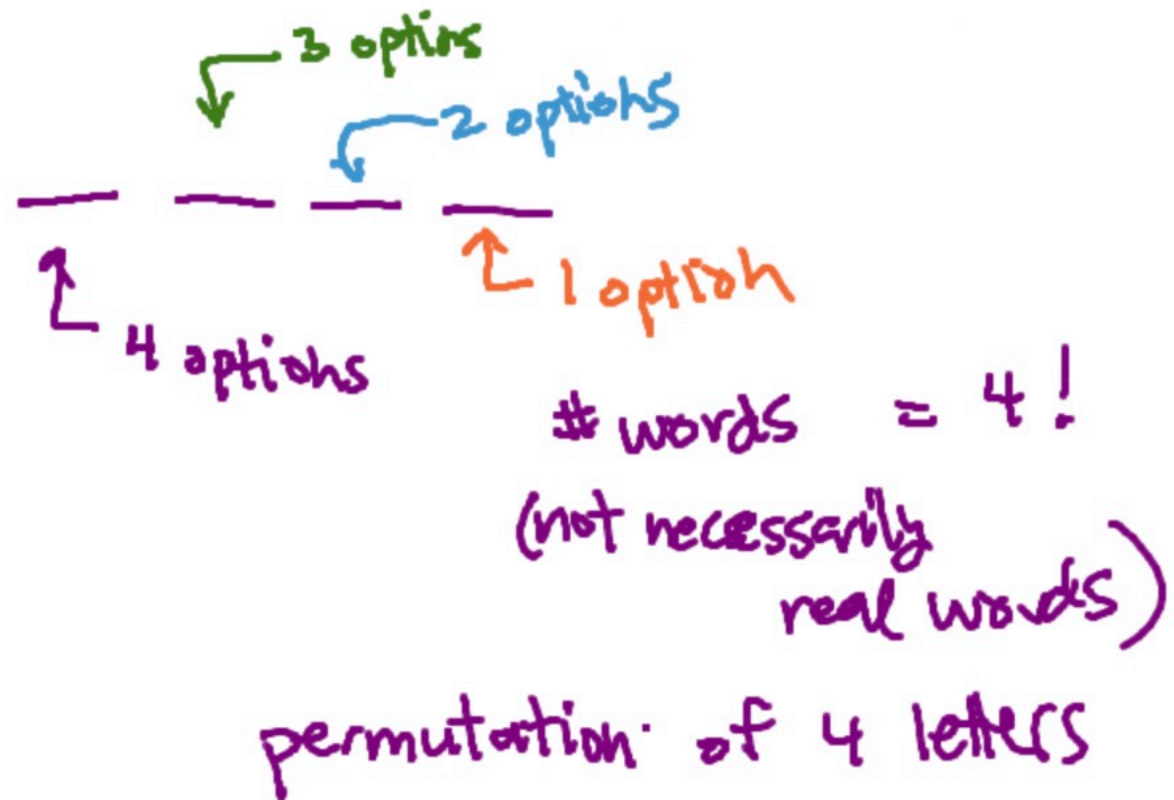 3 optins
2 options
1 option
4 options
# words = 4!
(not necessarily
real words)
permutation of 4 letters